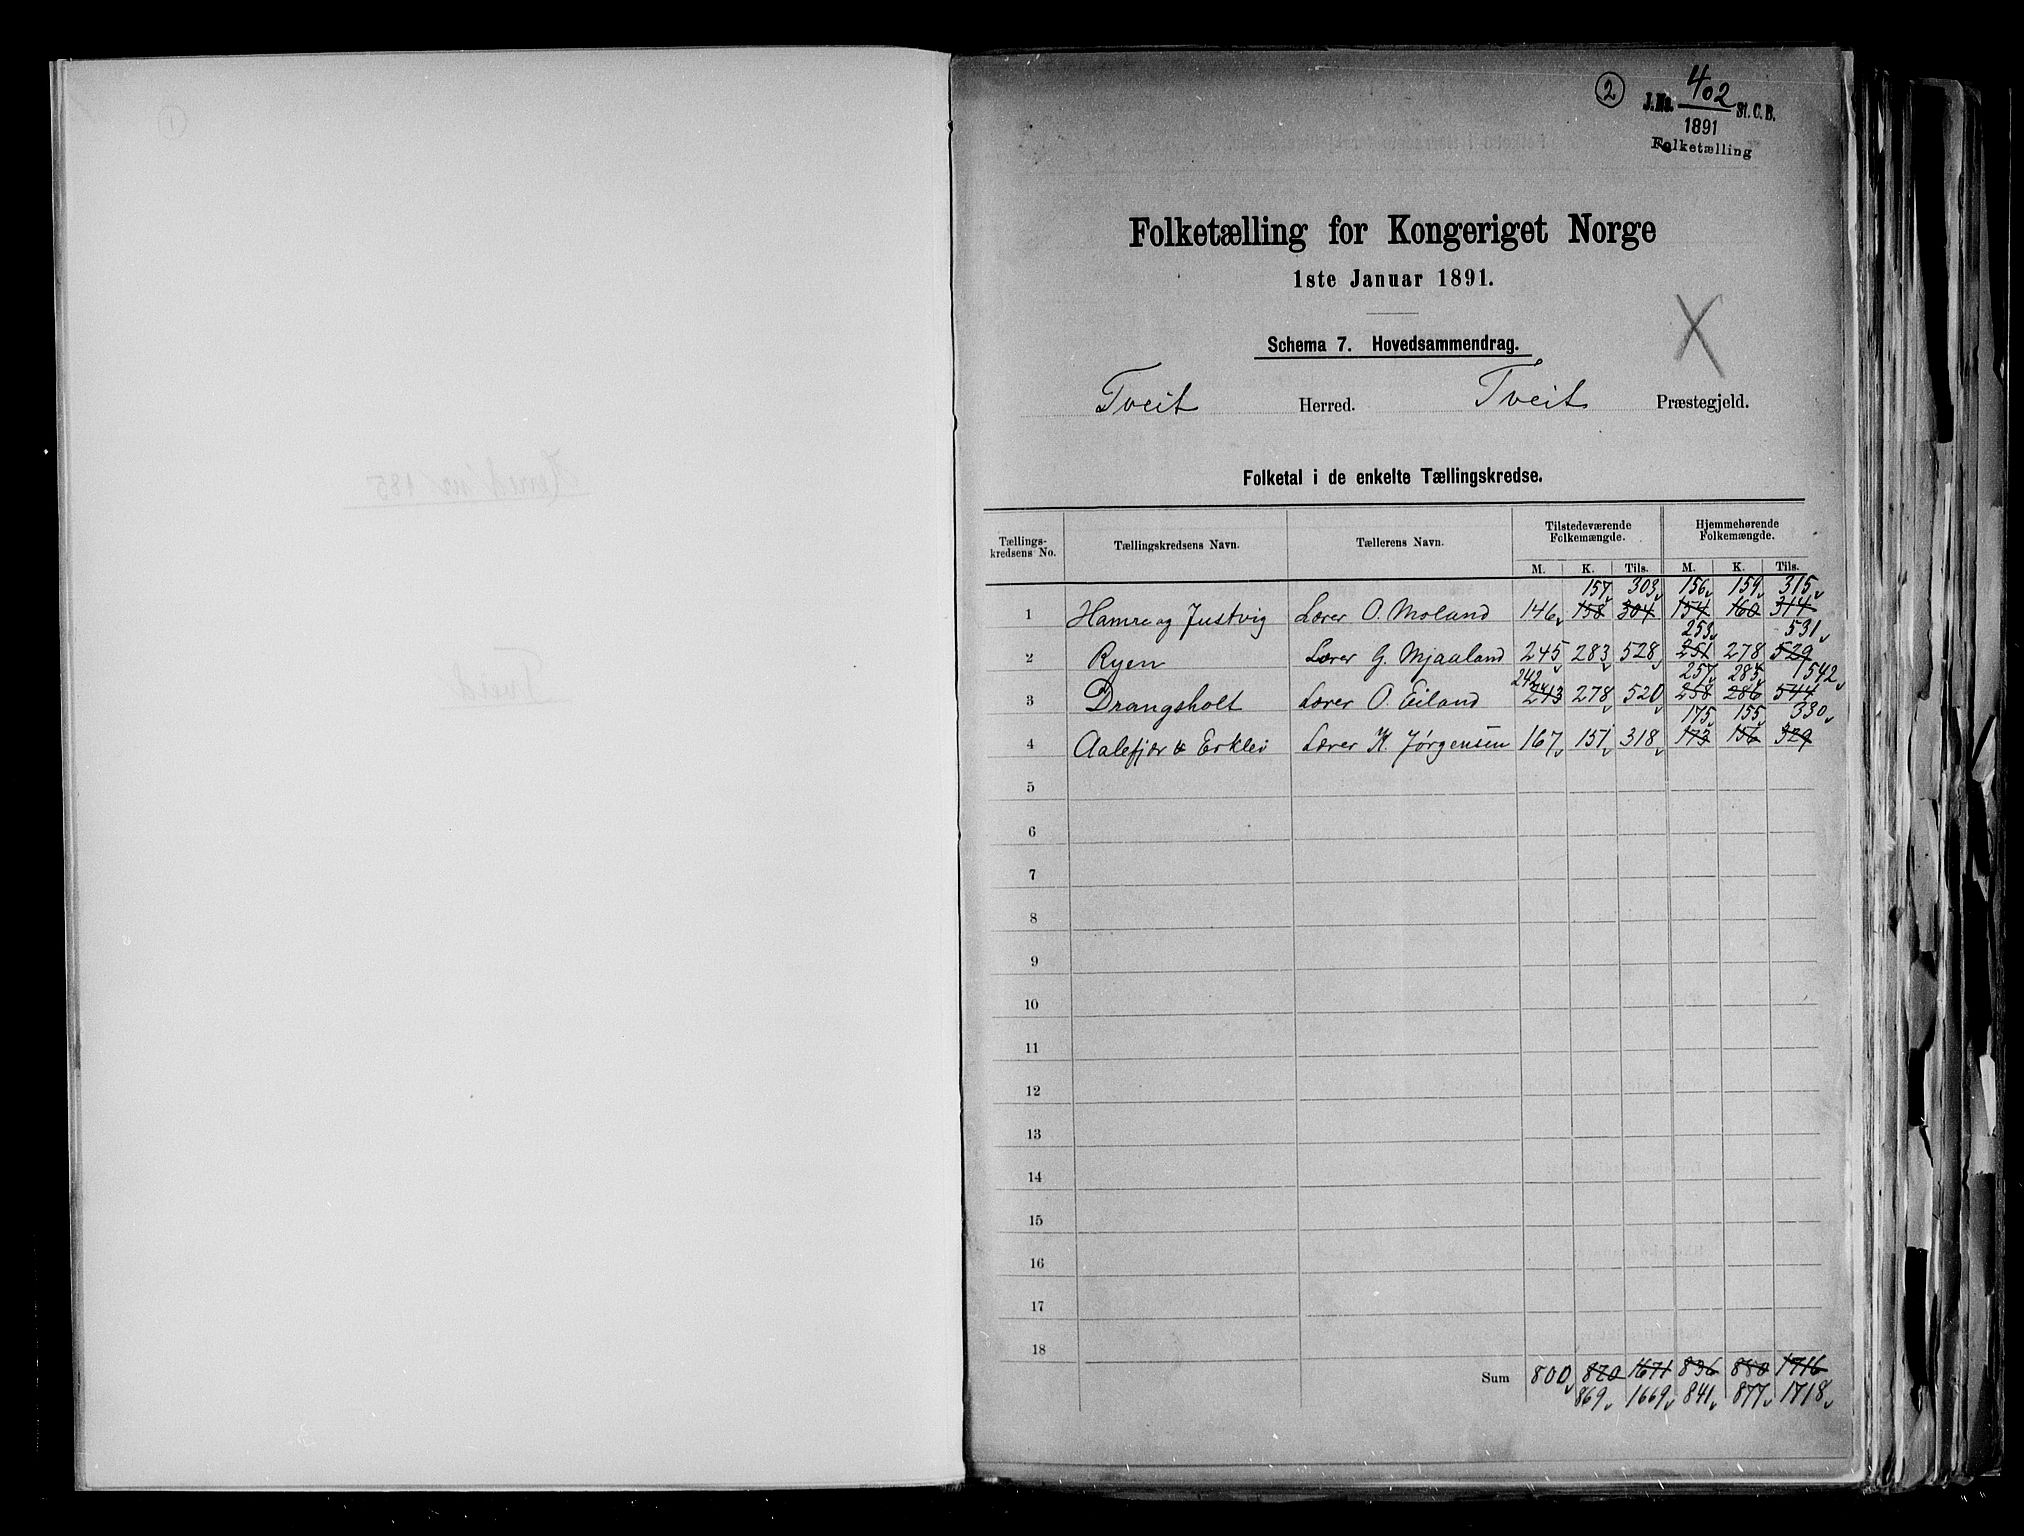 2
J.No. 402 St.C.B.
1891
Folketælling
Folketælling for Kongeriget Norge
1ste Januar 1891.
Schema 7. Hovedsammendrag.
X
Tveit Herred. Tveit Præstegjeld.
Folketal i de enkelte Tællingskredse.
Tællings-kredsens No. Tællingskredsens Navn. Tællerens Navn. Tilstedeværende Folkemængde. Hjemmehørende Folkemængde.
M. K. Tils. M. K. Tils.
157 303 156 159 315
1 Hamre og Justvig Lærer O. Moland 146 158 304 154 160 314
253 531
2 Ryen Lærer G. Mjaaland 245 283 528 251 278 529
242 257 285 542
3 Drangsholt Lærer O. Eiland 243 278 520 258 286 544
175 155 330
4 Aalefjær & Erklev Lærer K. Jørgensen 167 151 318 173 156 329
5
6
7
8
9
10
11
12
13
14
15
16
17
18
Sum 800 870 1671 836 880 1716
869 1669 841 877 1718
1
Herred nr 185
Tveid